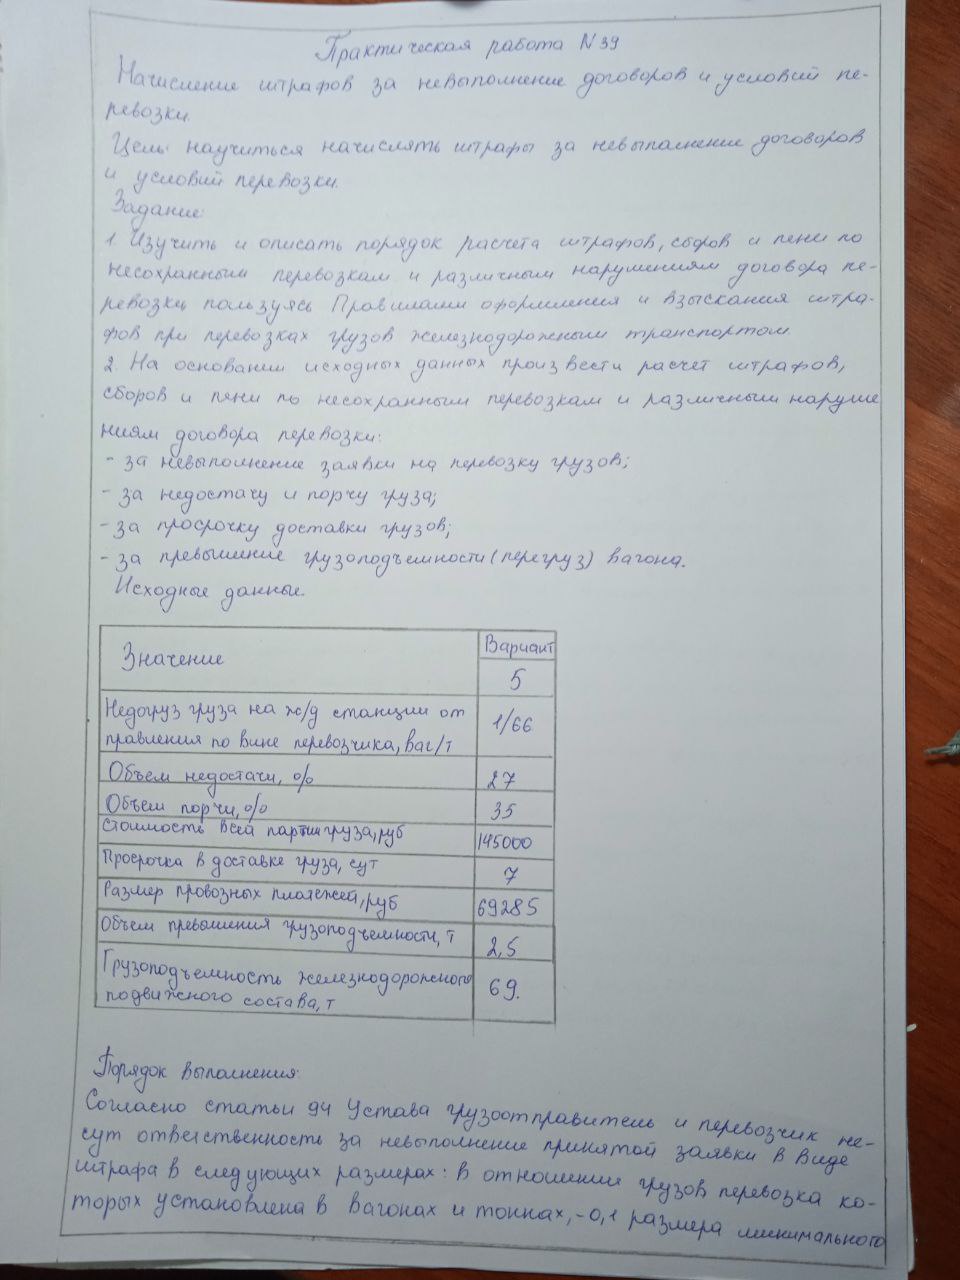 Практическая работа N39
Начисление штрафов за невыполнение договоров и условий пе-
ревозки.
Цель: научиться начислять штрафы за невыполнение договоров
и условий перевозки.
Задание:
1. Изучить и описать порядок расчета штрафов, сборов и пени по
несохранным перевозкам и различным нарушениям договора пе-
ревозки, пользуясь Правилами оформления и взыскания штра-
фов при перевозках грузов железнодорожным транспортом
2. На основании исходных данных произвести расчет штрафов,
сборов и пени по несохранным перевозкам и различным наруше
ниям договора перевозки:
- за невыполнение заявки на перевозку грузов;
- за недостачу и порчу груза;
- за просрочку доставки грузов;
- за превышение грузоподъемности (перегруз) вагона.
Исходные данные.
Значение
Вариант
5
Недогруз груза на ж/д станции от
правления по вине перевозчика, ваг/т
1/66
Объем недостачи, %
27
Объем порчи, %
35
Стоимость всей партии груза, руб
145000
Просрочка в доставке груза, сут
7
Размер провозных платежей, руб
69285
Объем превышения грузоподъемности, т
2,5
Грузоподъемность железнодорожного
подвижного состава, т
69.
Порядок выполнения:
Согласно статьи 94 Устава грузоотправитель и перевозчик не-
сут ответственность за невыполнение принятой заявки в виде
штрафа в следующих размерах: в отношении грузов перевозка ко-
торых установлена в вагонах и тоннах, - 0,1 размера минимального